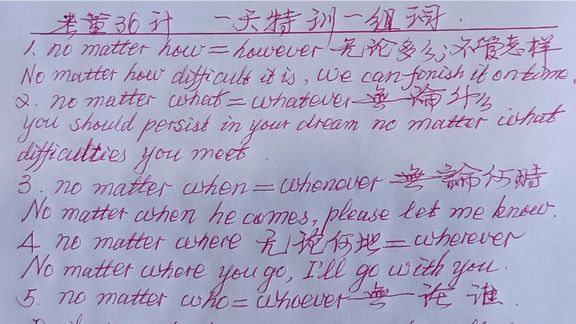 考黄36计 一天特训一组词.
1. no matter how = however 无论多么; 不管怎样
No matter how difficult it is, we can finish it on time.
2. no matter what = whatever 無論什么
you should persist in your dream no matter what
difficulties you meet.
3. no matter when = whenever 無論何時
No matter when he comes, please let me know.
4. no matter where 无论何地 = wherever
No matter where you go, I'll go with you.
5. no matter who = whoever 無论谁.